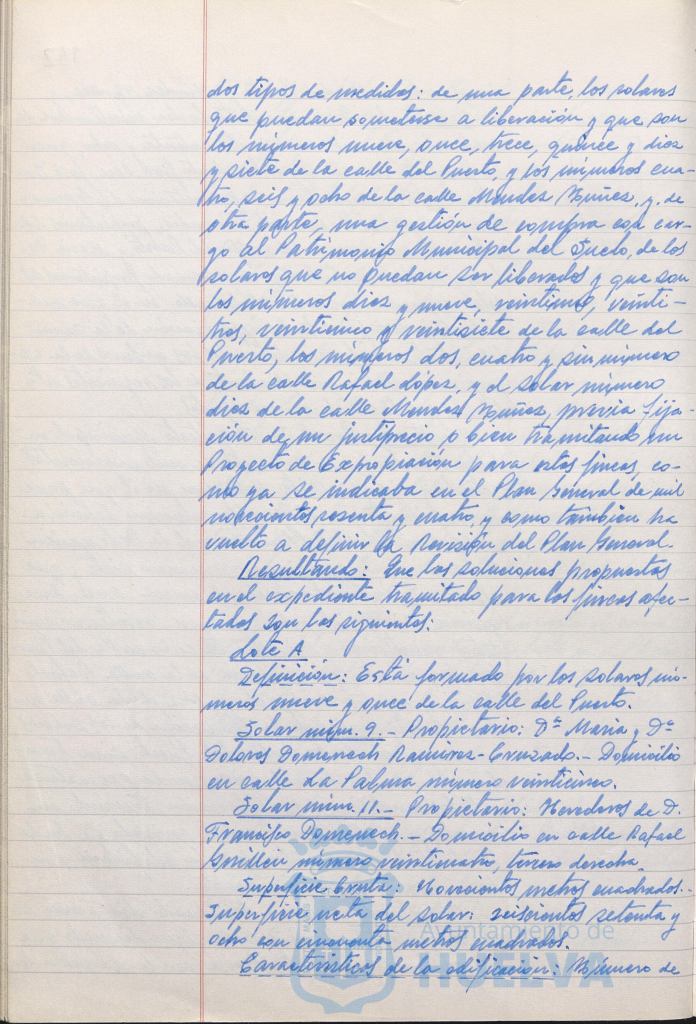 dos tipos de medidas: de una parte, los solares
que puedan someterse a liberación y que son
los números nueve, once, trece, quince y diez
y siete de la calle del Puerto, y los números cua-
tro, seis y ocho de la calle Mendez Nuñez, y, de
otra parte, una gestión de compra con car-
go al Patrimonio Municipal del Suelo, de los
solares que no puedan ser liberados y que son
los números diez y nueve, veintiuno, veinti-
tres, veinticinco y veintisiete de la calle del
Puerto, los números dos, cuatro y sin número
de la calle Rafael López, y el solar número
diez de la calle Mendez Nuñez, previa fija-
ción de un justiprecio o bien tramitando un
Proyecto de Expropiación para estas fincas, co-
mo ya se indicaba en el Plan General de mil
novecientos sesenta y cuatro, y como tambien ha
vuelto a definir la Revisión del Plan General.
Resultando: Que las soluciones propuestas
en el expediente tramitado para las fincas afec-
tadas son las siguientes:
Lote A
Definición: Está formado por los solares nú-
meros nueve y once de la calle del Puerto.
Solar núm. 9. - Propietario: Dª Maria y Dª
Dolores Domenech Ramirez-Cruzado. - Domicilio
en calle La Palma número veinticinco.
Solar núm. 11. - Propietario: Herederos de D.
Francisco Domenech. - Domicilio en calle Rafael
Guillen número veinticuatro, tercero derecha.
Superficie bruta: Novecientos metros cuadrados. -
Superficie neta del solar: seiscientos setenta y
ocho con cincuenta metros cuadrados.
Características de la edificación: Número de
Ayuntamiento de
HUELVA